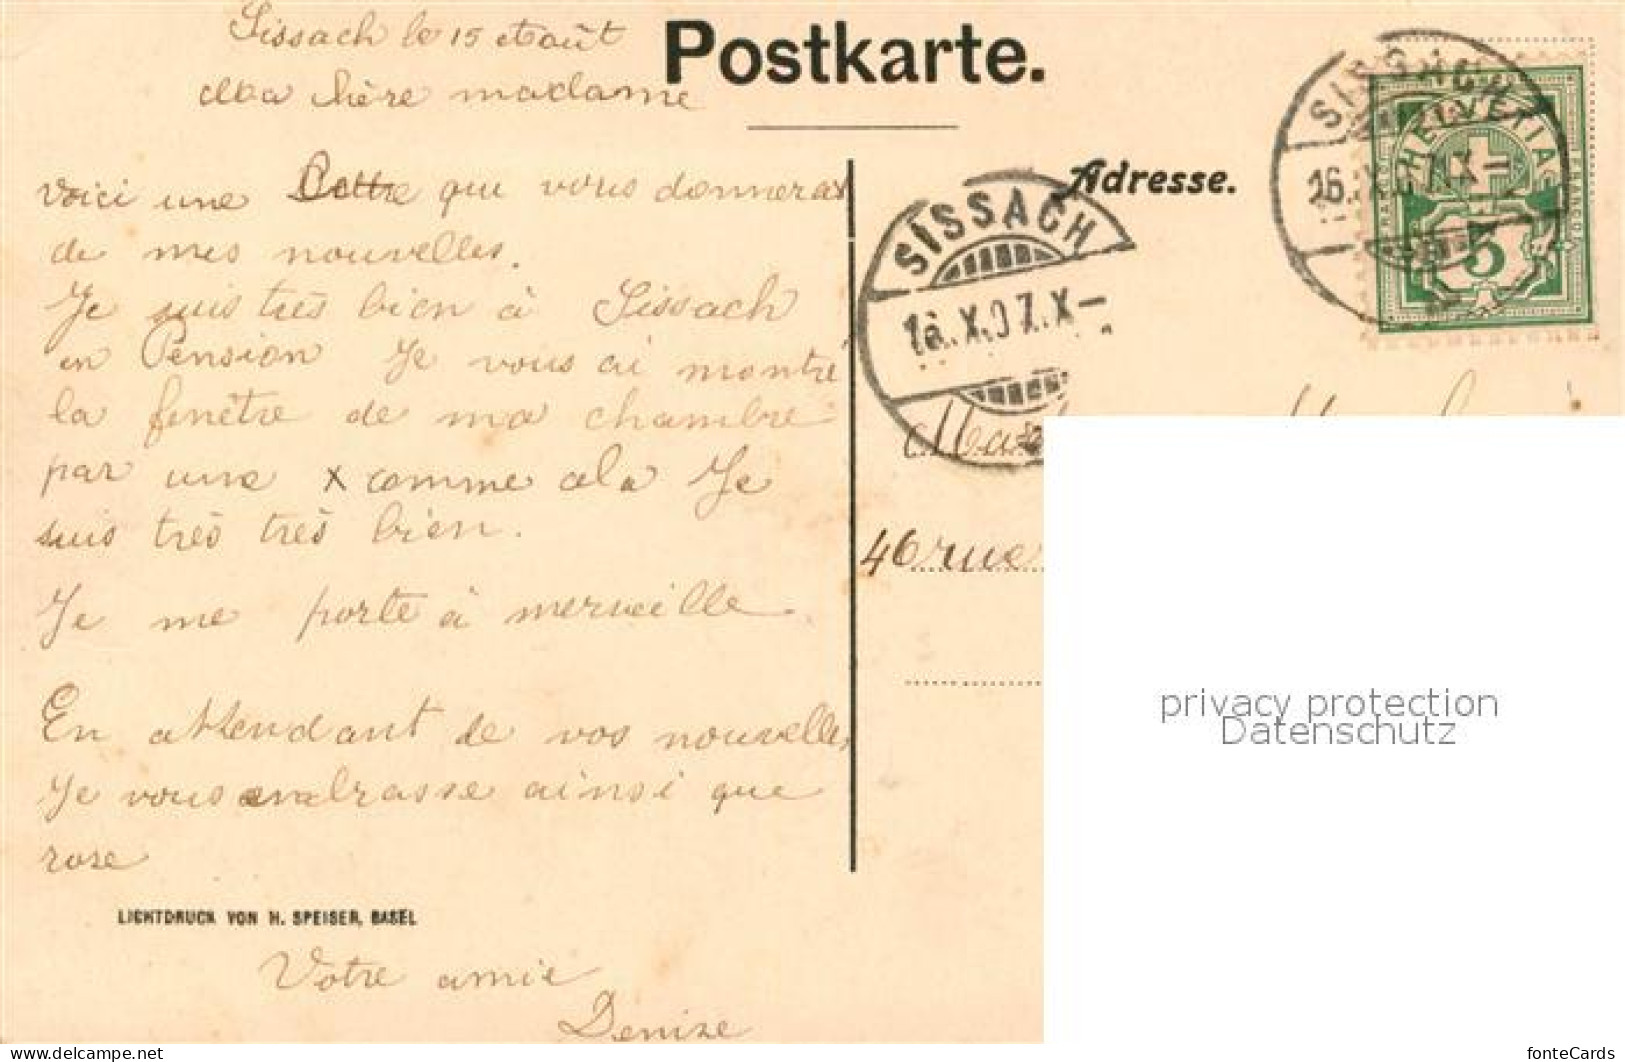 Sissach le 15 Août
Ma chère madame
Postkarte.
Voici une Cette que vous donneras
de mes nouvelles.
Je suis très bien à Sissach
en Pension Je vous ai montré
la fenêtre de ma chambre
par une x comme cela Je
suis très très bien.
Je me porte à merveille.
En attendant de vos nouvelles
Je vous embrasse ainsi que
rose
LICHTDRUCK VON H. SPEISER, BASEL
Votre amie
Denise
Adresse.
SISSACH
16.X.07.X-
SISSACH
16.X.07.X-
HELVETIA
FRANCO
5
46 rue
privacy protection
Datenschutz
https://www.delcampe.net
fonteCards